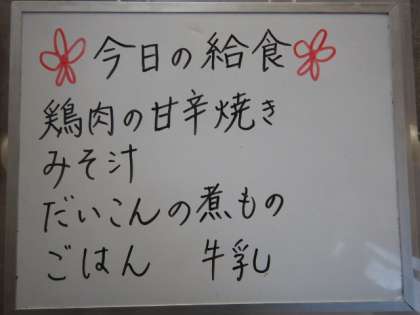 今日の給食
鶏肉の甘辛焼き
みそ汁
だいこんの煮もの
ごはん 牛乳